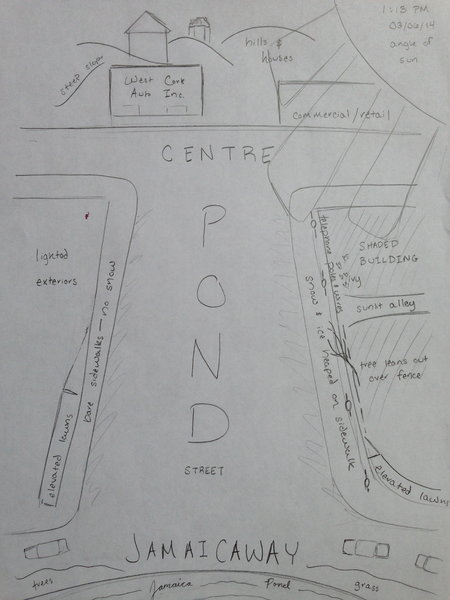 1:13 PM
03/06/14
angle of
sun
steep slope
hills &
houses
West Cork
Auto Inc.
commercial/retail
CENTRE
POND
STREET
lighted
exteriors
bare sidewalks — no snow
elevated lawns
telephone poles & wires
SHADED
BUILDING
ivy
sunlit alley
snow & ice heaped on sidewalk
tree leans out
over fence
elevated lawns
JAMAICAWAY
trees
Jamaica Pond
grass